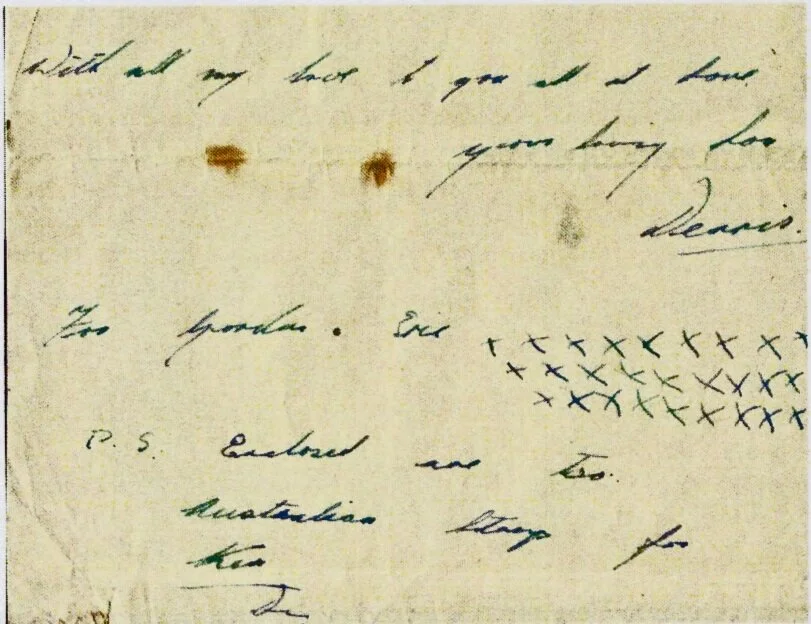 With all my love to you all at home.
your loving son
Dennis.
For Gordon. Eric x x x x x x x x x
x x x x x x x x x
x x x x x x x x x
P.S. Enclosed are two
Australian stamps for
Ken